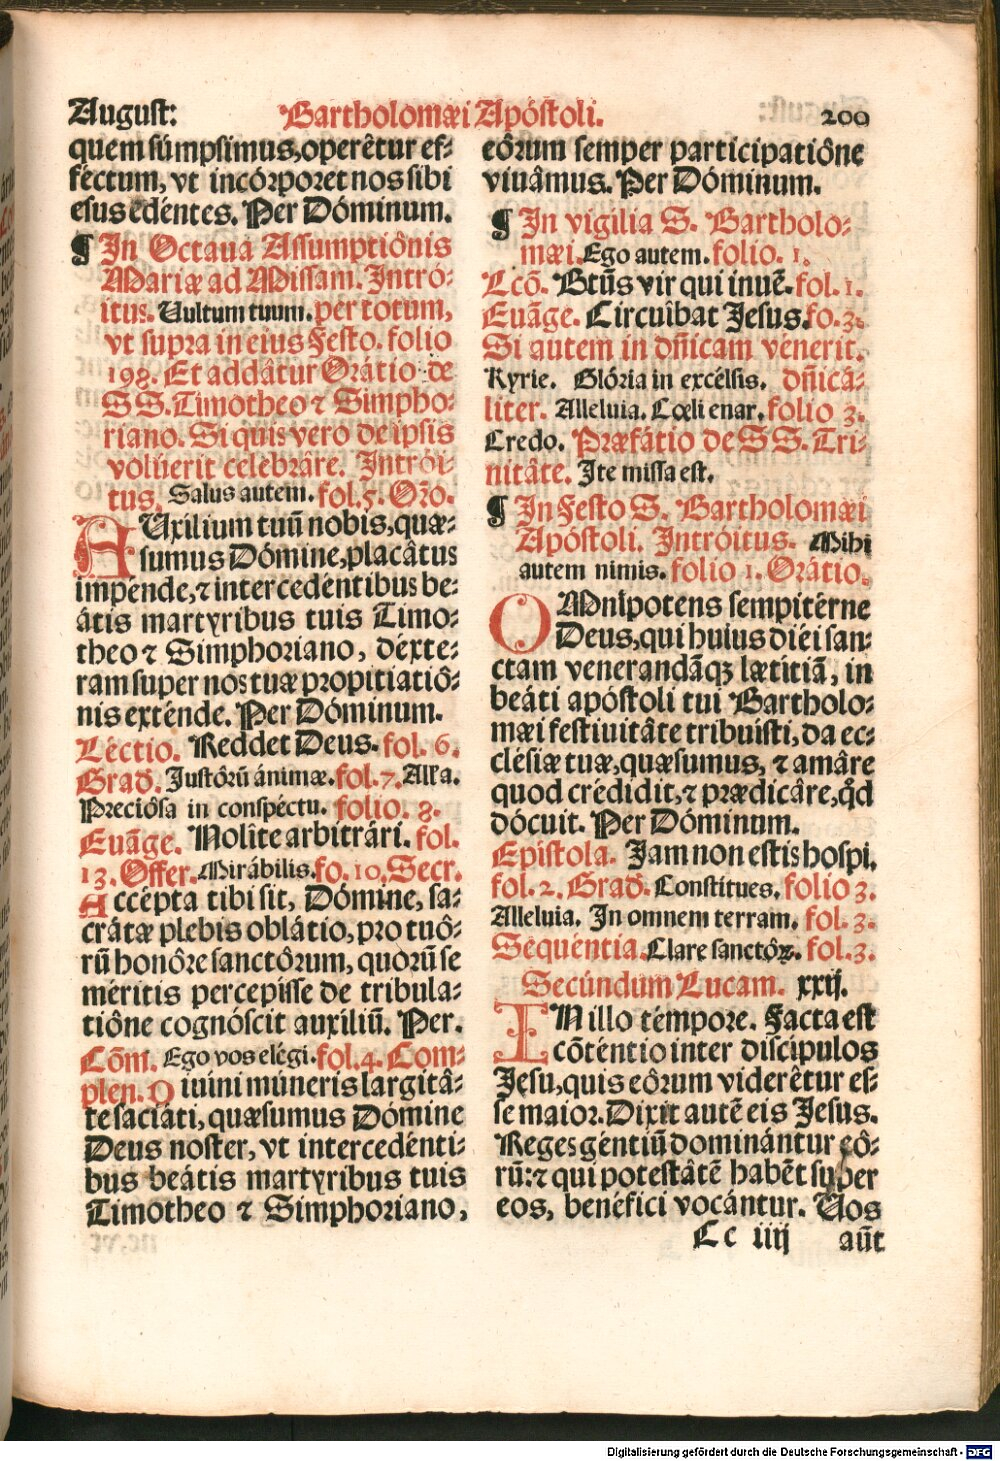 August: Bartholomæi Apóstoli. 200
quem súmpsimus, operêtur ef⸗
féctum, vt incórporet nos sibi
esus edéntes. Per Dóminum.
¶ In Octaua Assumptiônis
Mariæ ad Missam. Intró⸗
itus. Vultum tuum. per totum,
vt supra in eius Festo. folio
198. Et addâtur Orátio de
SS. Timotheo ⁊ Simpho⸗
riano. Si quis vero de ipsis
volúerit celebrâre. Intrói⸗
tus. Salus autem. fol. 5. Orõ.
AUxilium tuũ nobis, quæ⸗
sumus Dómine, placâtus
impénde, ⁊ intercedéntibus be⸗
átis martyribus tuis Timo⸗
theo ⁊ Simphoriano, déxte⸗
ram super nos tuæ propitiatiô⸗
nis exténde. Per Dóminum.
Léctio. Reddet Deus. fol. 6.
Grad. Justórũ ánimæ. fol. 7. Alľa.
Preciôsa in conspéctu. folio. 8.
Euãge. Nolîte arbitrári. fol.
13. Offer. Mirábilis. fo. 10. Secr.
Accépta tibi sit, Dómine, sa⸗
crâtæ plebis oblátio, pro tuô⸗
rũ honôre sanctôrum, quorũ se
méritis percepisse de tribula⸗
tiône cognóscit auxiliũ. Per.
Cõm. Ego vos elégi. fol. 4. Com⸗
plen. Diuini múneris largitâ⸗
te saciáti, quæsumus Dómine
Deus noster, vt intercedénti⸗
bus beátis martyribus tuis
Timotheo ⁊ Simphoriano,
eôrum semper participatiône
viuâmus. Per Dóminum.
¶ In vigilia S. Bartholo⸗
mæi. Ego autem. folio. 1.
Lcõ. Btũs vir qui inuẽ. fol. 1.
Euãge. Circuîbat Jesus. fo. 3.
Si autem in dñicam venerit.
Kyrie. Glória in excélsis. dñicá⸗
liter. Alleluia. Cœli enar. folio 3.
Credo. Præfátio de SS. Tri⸗
nitâte. Ite missa est.
¶ In Festo S. Bartholomæi
Apóstoli. Intróitus. Mihi
autem nimis. folio 1. Orátio.
OMnîpotens sempitérne
Deus, qui huius diéi san⸗
ctam venerandãqꝫ lætitiã, in
beáti apóstoli tui Bartholo⸗
mæi festiuitâte tribuísti, da ec⸗
clésiæ tuæ, quæsumus, ⁊ amâre
quod crédidit, ⁊ prædicâre, qď
dócuit. Per Dóminum.
Epístola. Jam non estis hospi.
fol. 2. Grad. Constitues. folio 3.
Alleluia. In omnem terram. fol. 3.
Sequéntia. Clare sanctóꝝ. fol. 3.
Secúndum Lucam. xxij.
IN illo témpore. Facta est
cõténtio inter discipulos
Jesu, quis eôrum viderêtur es⸗
se maior. Dixit autẽ eis Jesus.
Reges géntiũ dominántur eô⸗
rũ: ⁊ qui potestâtẽ habẽt super
eos, benéfici vocántur. Vos
Cc iiij aũt